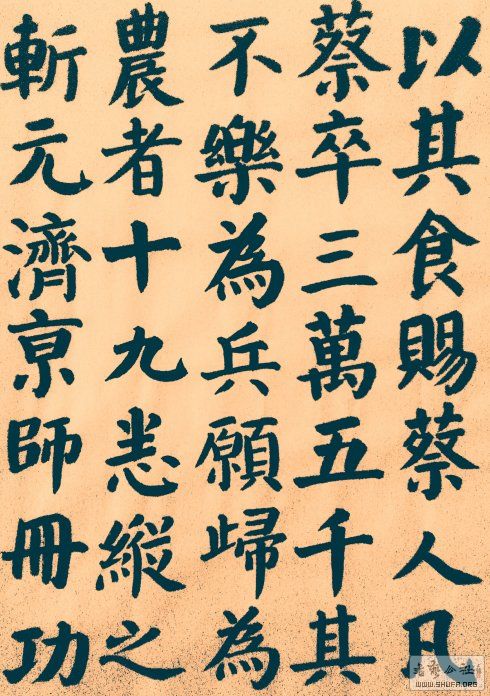 以其食賜蔡人凡
蔡卒三萬五千其
不樂為兵願歸為
農者十九悉縱之
斬元濟京師冊功
WWW.SHUFA.ORG